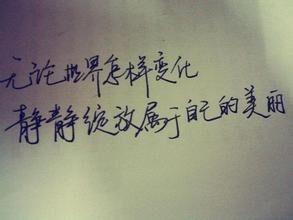 无论世界怎样变化
静静绽放属于自己的美丽